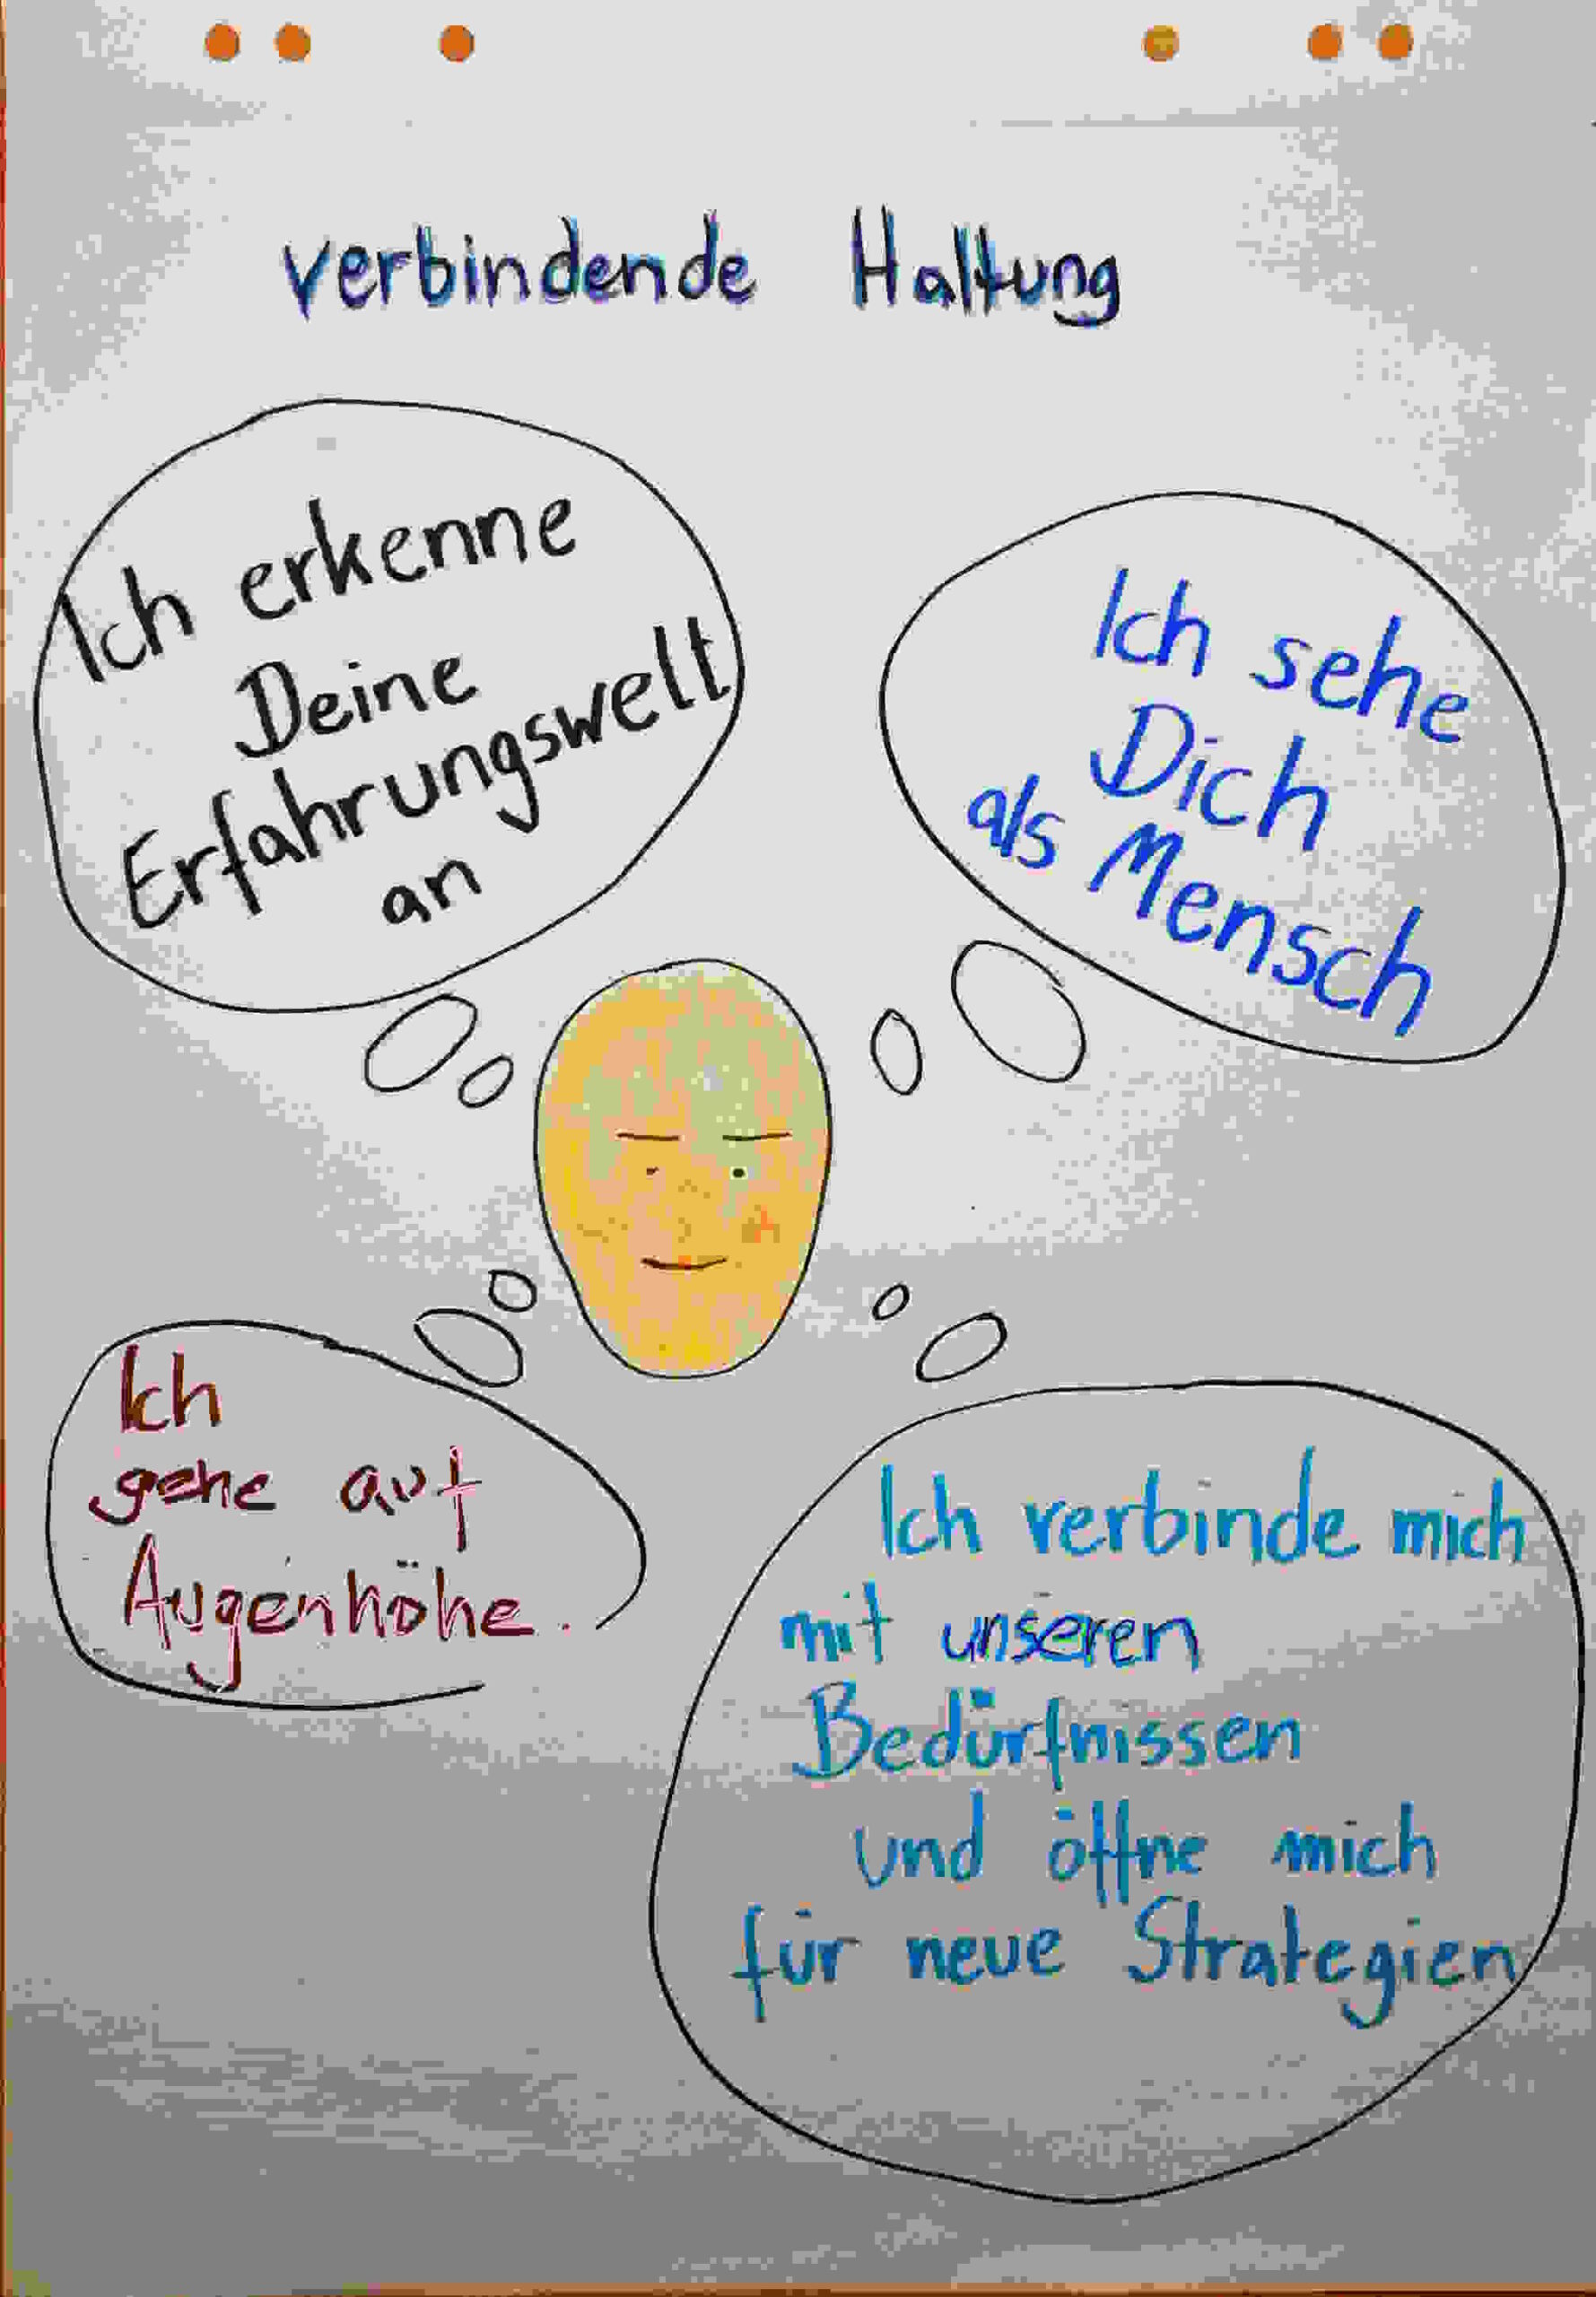 verbindende Haltung
Ich erkenne
Deine
Erfahrungswelt
an
Ich sehe
Dich
als Mensch
Ich
gehe auf
Augenhöhe.
Ich verbinde mich
mit unseren
Bedürfnissen
und öffne mich
für neue Strategien